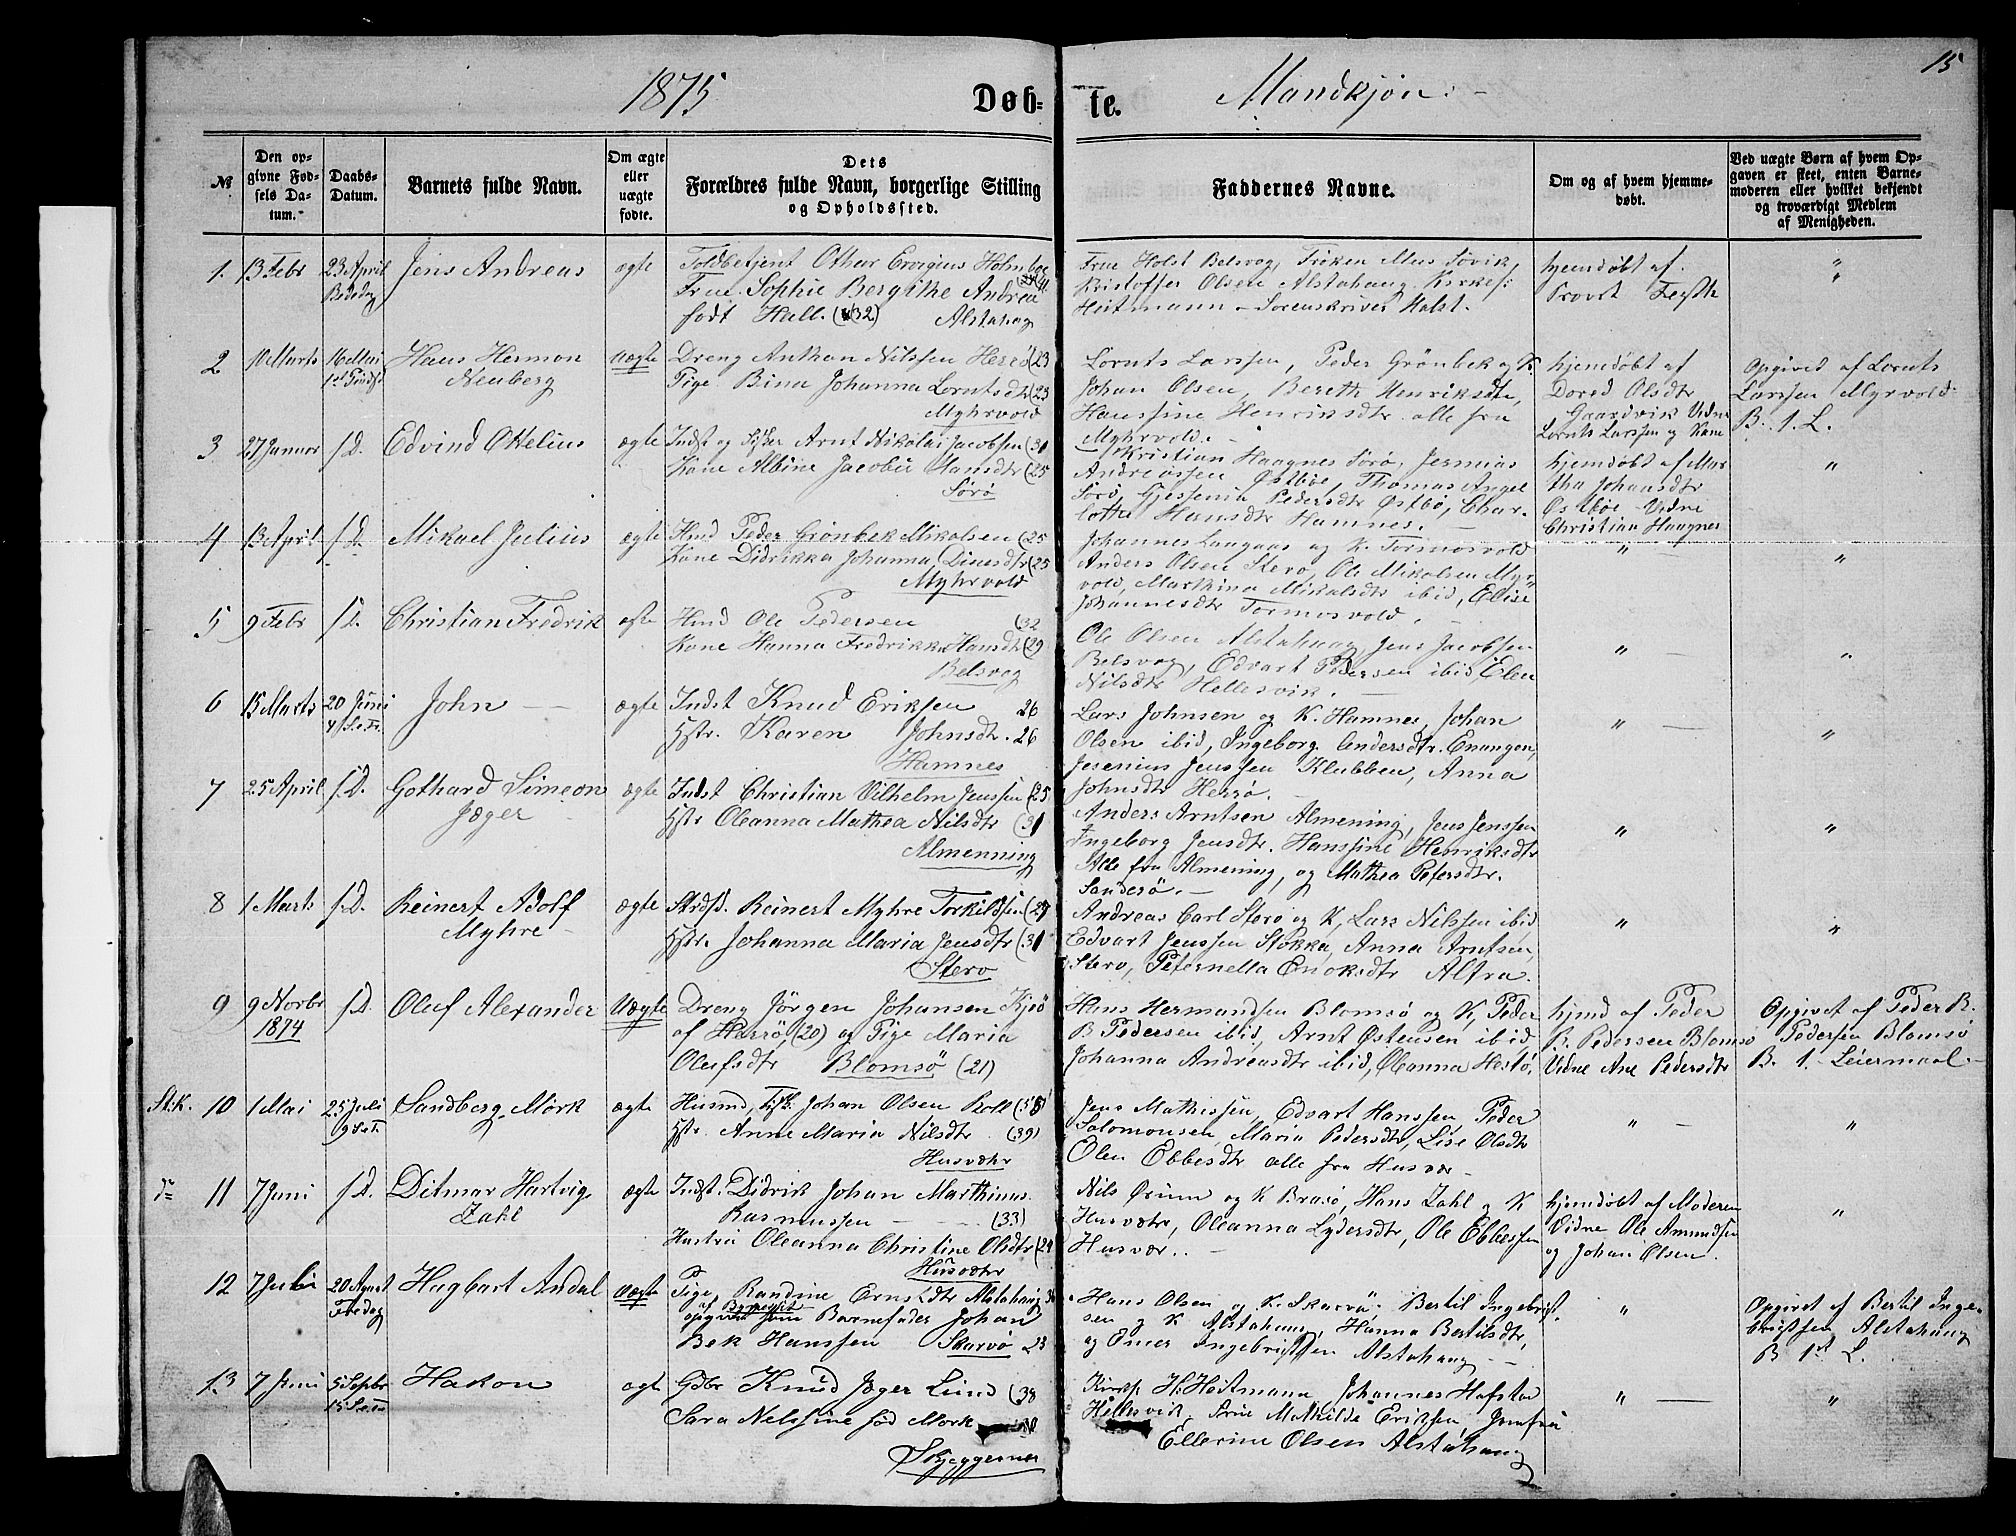 15
1875 Døb- te. Mandkjøn. -
№
Den op-
givne Fød-
sels Da-
tum.
Daabs-
Datum.
Barnets fulde Navn.
Om ægte
eller
uægte
fødte.
Dets
Forældres fulde Navn, borgerlige Stilling
og Opholdssted.
Faddernes Navne.
Om og af hvem hjemme-
døbt.
Ved uægte Børn af hvem Op-
gaven er skeet, enten Barne-
moderen eller hvilket bekjendt
og troværdigt Medlem
af Menigheden.
1. 13 Febr 23 April Bededag
Jens Andreas
ægte
Toldbetjent Othar Ervigius Holmboe
Frue Sophie Bergithe Andrea
født Hall. (32) Alstahag
Frue Holst Belsvag, Frøken Mus Søvik,
Kristoffer Olsen Alstahaug Kirkes:
Heitmann - Sorenskriver Holst.
hjemdøbt af
Provst
"
2 10 Marts 16 Mai
Hans Hermon
Neuberg
uægte
Dreng Anthon Nilssen Herrø (23
Pige Bina Johanna Lorntsdtr (23
Myhrvold
Lornts Larssen, Peder Grönbek og K.
Johan Olsen, Bereth Henriksdtr,
Hanssine Henriksdtr alle fra
Myhrvold. -
hjemdøbt af
Dored Olsdtr
Gaardvik Vidne
Lornts Larssen og Kone
Opgived af Lornts
Larssen Myrvold
B. 1. L.
3 27 Januar s.D.
Edvind Ottelius
ægte
Indst og Fisker Arnt Nikolai Jacobsen (31
Kone Albine Jacobie Hansdtr (25
Sørø
Kristian Haagnes Sørø, Jermias
Andreassen Østbøe, Thomas Angel
Sørø, Gjessenia Pedersdtr Østbø, Char-
lotte Hansdtr Hamnes. -
hjemdøbt af Mar
tha Johansdtr
Østbøe Vidne
Christian Haagnes
"
4 13 April s.D.
Mikael Julius
ægte
Hmd Peder Grönbek Mikalsen (25
Kone Didrikka Johanna Dinesdtr (25
Myhrvold
Johannes Langaas og K. Tormosvold
Anders Olsen Sterø, Ole Mikalsen Myr-
vold, Marthina Mikalsdtr ibid, Elise
Johannesdtr Tormosvold.
" -
"
5 9 Febr s.D.
Christian Fredrik
ægte
Hmd Ole Pedersen (32
Kone Hanna Fredrikka Hansdtr (29
Belsvag
Ole Olsen Alstahaug, Jens Jacobsen
Belsvag, Edvart Pedersen ibid, Elen
Nilsdtr Hellesvik. -
" -
"
6 15 Marts 20 Juni
John -
ægte
Indst Knud Eriksen 26
Hstr. Karen Johnsdtr. 26
Hamnes
Lars Johnsen og K. Hamnes, Johan
Olsen ibid, Ingeborg Andersdtr. Enangen,
Jesenius Jenssen Klubben, Anna
Johnsdtr Herrø. -
" -
"
7 25 April s.D.
Gothard Simeon
Jæger
ægte
Indst Christian Vilhelm Jenssen (25
Hstr Oleanna Mathea Nilsdtr (31
Almenning
Anders Arntsen Almening, Jens Jenssen
Ingeborg Jensdtr. Hanssine Henriksdtr
Alle fra Almening, og Mathea Petersdtr.
Sanderö. -
"
"
8 1 Marts s.D.
Reinert Adolf
Myhre
ægte
Strds. Reinert Myhre Torkildsen (27
Hstr. Johanna Maria Jensdtr (31
Stero
Andreas Carl Sterø og K, Lars Nilssen ibid
Edvart Jenssen Stokka, Anna Arntsen
Stero, Peternella Enoksdtr Alfra.
"
"
9 9 Novbr
1874
s.D.
Oluf Alexander
Uægte
Dreng Jörgen Johansen Kjsö
af Herrø, (20) og Pige Maria
Olufsdtr Blomsö (21)
Hans Hermandsen Blomsö og K, Peder
B Pedersen ibid, Arnt Østensen ibid
Johanna Andreasdtr ibid, Oleanna Hestö,
hjmd af Peder
B. Pedersen Blomsö
Vidne Ane Pedersdtr
Opgivet af Peder B.
Pedersen Blomsö
B. 1. Leiermaal -
St.K. 10 1 Mai 25 Juli
Sandberg Mörk
ægte
Husmd, Fisk. Johan Olsen Roll
Hstr. Anne Maria Nilsdtr. (39)
Husvær
Jens Mathissen, Edvart Hanssen, Peder
Salomonsen, Maria Pedersdtr, Lise Olsdtr
Olen Ebbesdtr alle fra Husvær -
" -
"
do 11 7 Juni s.D.
Ditmar Hartvig
Zahl
ægte
Indst. Didrik Johan Marthinus
Rasmussen - - - (33)
Hustru Oleanna Christine Olsdtr (24
Husvær
Nils Grünn og K Brasø, Hans Zahl og K
Husvær, Oleanna Lydersdtr, Ole Ebbessen
Husvær. -
hjemdøbt af Moderen
Vidne Ole Amundsen
og Johan Olsen
"
12 7 Juli 20 August
Fredag
Hagbart Andal
Uægte
Pige Randine Ernsdtr Alstahaug
opgivet som Barnefader Johan
Bek Hanssen Skarvö 23
Hans Olsen og K. Skarvö. Bertil Ingebrigt-
sen og K Alstahaug, Hanna Bertilsdtr,
og Emer Ingebrigtsen Alstahaug -
"
Opgivet af Bertil Inge-
brigtsen Alstahaug
B 1st L.
13 7 Juni 5 Septbr
Hakon
ægte
Gdbr Knud Jæger Lund (38
Sara Nelssine født Mork
Skjeggernes
Kirks. H. Heitmann, Johannes Hafstad
Hellesvik. Frue Mathilde Eriksen Jomfrue
Ellerine Olsen Alstahaug
" -
"